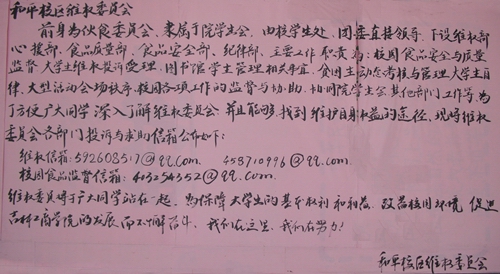 和平校区维权委员会
前身为伙食委员会，隶属于院学生会，由校学生处、团委直接领导，下设维权部
心援部、食品质量部、食品安全部、纪律部，主要工作职责为：校园食品安全与质量
监督，大学生维权投诉受理，图书馆学生管理相关事宜，食园主动态考核与管理大学生自
律，大型活动会场秩序，校园各项工作的监督与协助，协同院学生会其他部门工作等，为
了方便广大同学深入了解维权委员会，并且能够找到维护自身权益的途径，现将维权
委员会各部门投诉与求助信箱公布如下：
维权信箱：592608517@qq.com、458710996@qq.com
校园食品监督信箱：403254352@qq.com.
维权委员将于广大同学站在一起，为保障大学生的基本权利和利益，改善校园环境，促进
吉林工商学院的发展而不懈奋斗，我们在这里，我们在努力！
和平校区维权委员会